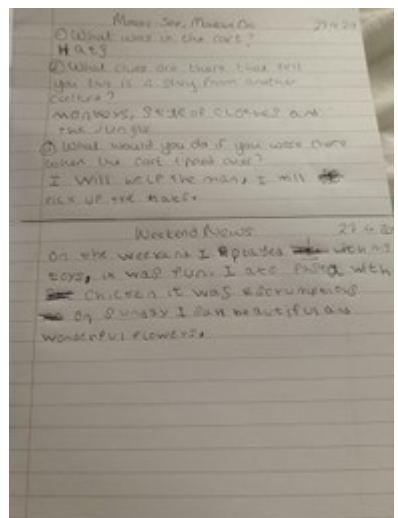 Monkey See, Monkey Do 27.4.20
① What was in the cart?
Hats
② What clues are there that tell
you this is a story from another
culture?
monkeys, style of clothes and
the Jungle
③ What would you do if you were there
when the cart tipped over?
I will help the man, I will
pick up the hats.
Weekend News 27.4.20
on the weekend I played with my
toys, it was fun. I ate Pasta with
chicken it was escrumptious
on Sunday I saw beautiful and
wonderful flowers.